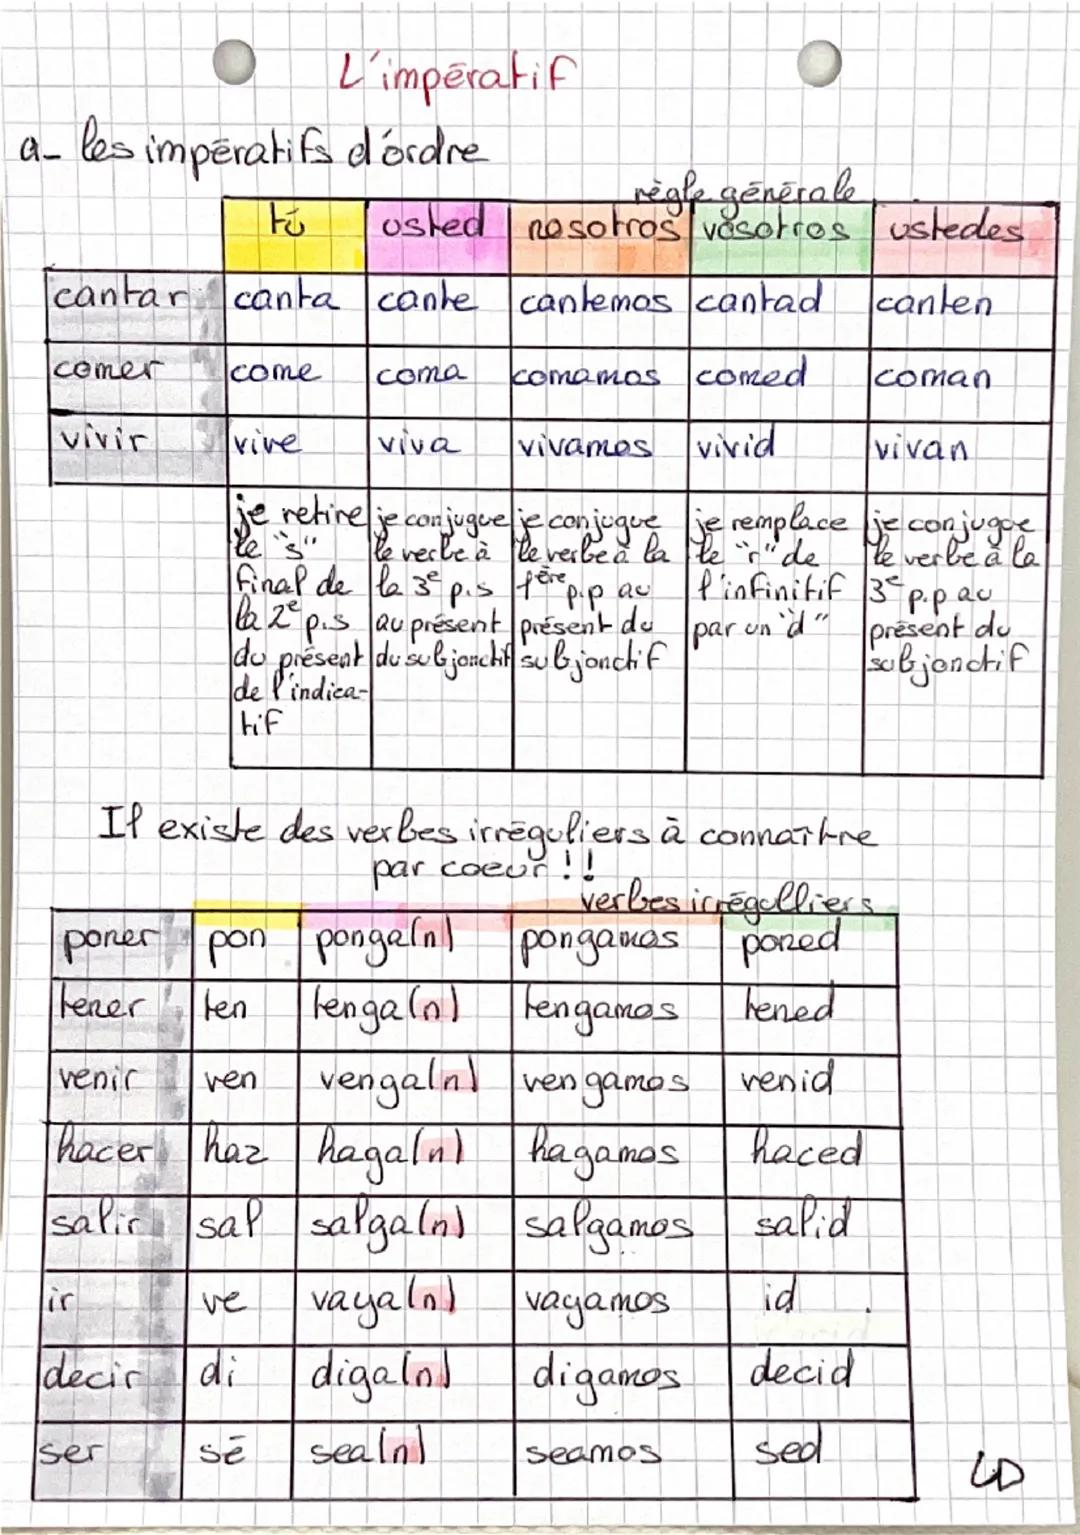 L'impératif
a- les impératifs d'ordre
règle générale
tú usted nosotros vosotros ustedes
cantar canta cante cantemos cantad canten
comer come coma comamos comed coman
vivir vive viva vivamos vivid vivan
je retire je conjugue je conjugue je remplace je conjugue
le "s" le verbe à le verbe à la le "r" de le verbe à la
final de la 3e p.s 1ère p.p au l'infinitif 3e p.p au
la 2e p.s au présent présent du par un "d" présent du
du présent du subjonctif subjonctif subjonctif
de l'indica-
tif
Il existe des verbes irréguliers à connaître
par coeur !!
verbes irrégulliers
poner pon ponga(n) pongamos poned
tener ten tenga(n) tengamos tened
venir ven venga(n) vengamos venid
hacer haz haga(n) hagamos haced
salir sal salga(n) salgamos salid
ir ve vaya(n) vayamos id
decir di diga(n) digamos decid
ser sé sea(n) seamos sed
LD